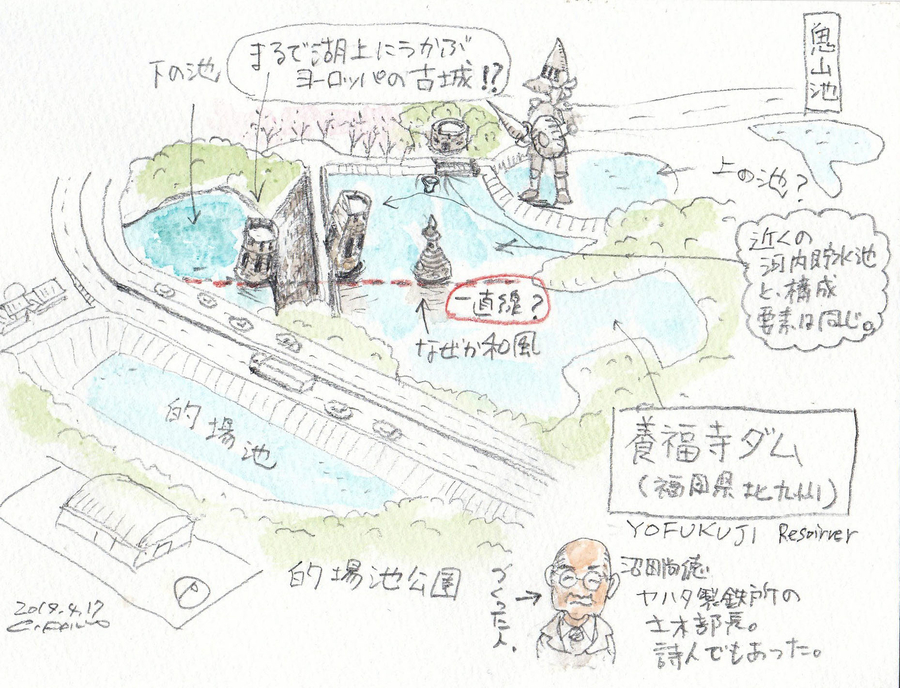 下の池
まるで湖上にうかぶ
ヨーロッパの古城!?
鬼山池
上の池?
近くの
河内貯水池
と、構成
要素は同じ。
一直線?
なぜか和風
的場池
養福寺ダム
(福岡県北九州)
YOFUKUJI Resoirver
的場池公園
つくった人。
沼田尚徳
ヤハタ製鉄所の
土木部長。
詩人でもあった。
2019.4.17